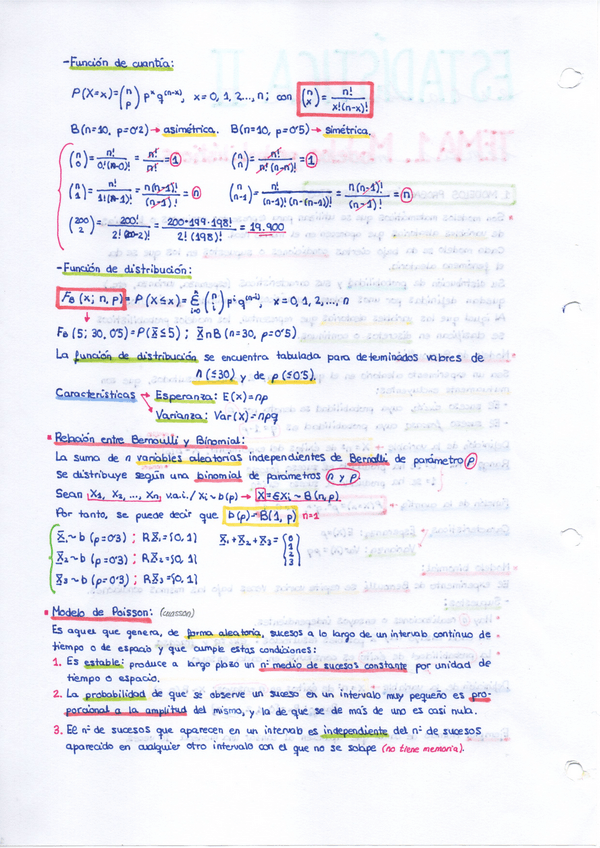 -Función de cuantía:
P(X=x)=(n p) p^x q^(n-x), x=0, 1, 2..., n; con (n x) = n! / x!(n-x)!
B(n=10, p=0'2)→asimétrica. B(n=10, p=0'5)→simétrica.
(n 0)= n! / 0!(n-0)! = n! / n! = 1 (n n)= n! / n!(n-n)! = 1
(n 1)= n! / 1!(n-1)! = n(n-1)! / (n-1)! = n (n n-1)= n! / (n-1)!(n-(n-1))! = n(n-1)! / (n-1)! = n
(200 2)= 200! / 2!(200-2)! = 200·199·198! / 2!(198)! = 19.900
-Función de distribución:
F_B (x; n, p)= P(X≤x)= Σ i=0 (n i) p^i q^(n-i), x=0, 1, 2, ..., n
F_B (5; 30, 0'5)=P(X≤5) ; X~B(n=30, p=0'5)
La función de distribución se encuentra tabulada para determinados valores de
n (≤30) y de p (≤0'5).
Características → Esperanza: E(x)=np
Varianza: Var(x)=npq
▪ Relación entre Bernoulli y Binomial:
La suma de n variables aleatorias independientes de Bernolli de parámetro p
se distribuye según una binomial de parámetros n y p.
Sean X1, X2, ..., Xn v.a.i./ Xi~b(p) → X=ΣXi~B(n,p).
Por tanto, se puede decir que b(p)=B(1, p) n=1
X1~b (p=0'3) ; RX1={0, 1} X1+X2+X3= {0 1 2 3}
X2~b (p=0'3) ; RX2={0, 1}
X3~b (p=0'3) ; RX3={0, 1}
▪ Modelo de Poisson: (cuasson)
Es aquel que genera, de forma aleatoria, sucesos a lo largo de un intervalo continuo de
tiempo o de espacio y que cumple estas condiciones:
1. Es estable: produce a largo plazo un nº medio de sucesos constante por unidad de
tiempo o espacio.
2. La probabilidad de que se observe un suceso en un intervalo muy pequeño es pro-
porcional a la amplitud del mismo, y la de que se de más de uno es casi nula.
3. El nº de sucesos que aparecen en un intervalo es independiente del nº de sucesos
aparecido en cualquier otro intervalo con el que no se solape (no tiene memoria).